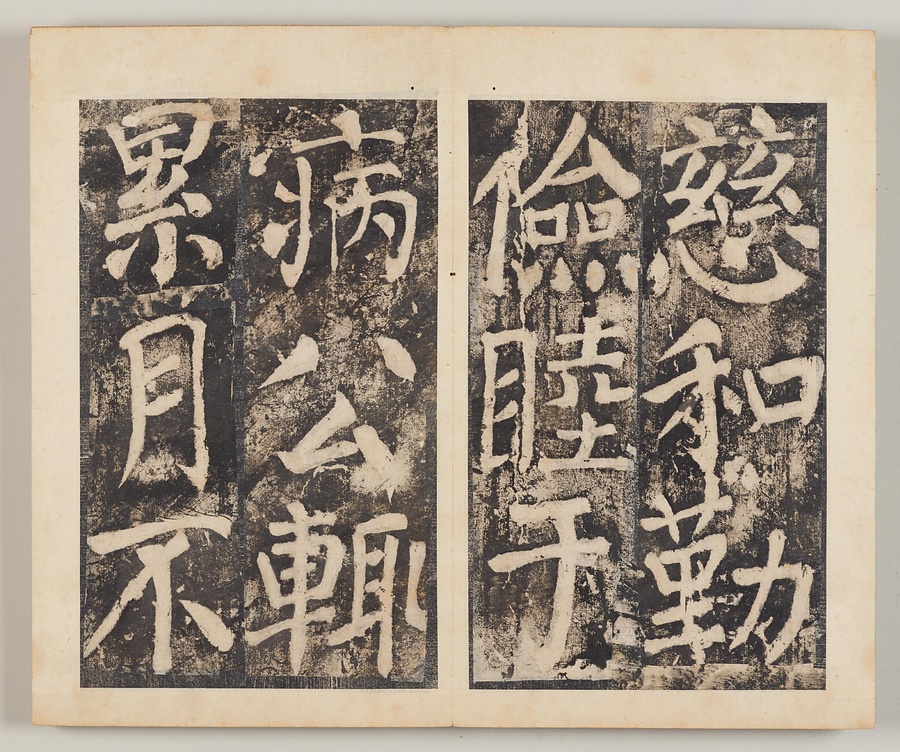 慈和勤
儉睦于
病公輙
累月不